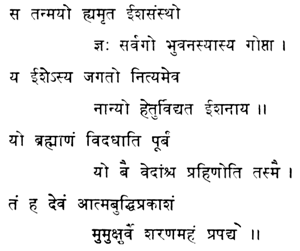 स तन्मयो ह्यमृत ईशसंस्थो
ज्ञः सर्वगो भुवनस्यास्य गोप्ता ।
य ईशेऽस्य जगतो नित्यमेव
नान्यो हेतुर्विद्यत ईशनाय ॥
यो ब्रह्माणं विदधाति पूर्वं
यो वै वेदांश्च प्रहिणोति तस्मै ।
तं ह देवं आत्मबुद्धिप्रकाशं
मुमुक्षुर्वै शरणमहं प्रपद्ये ॥